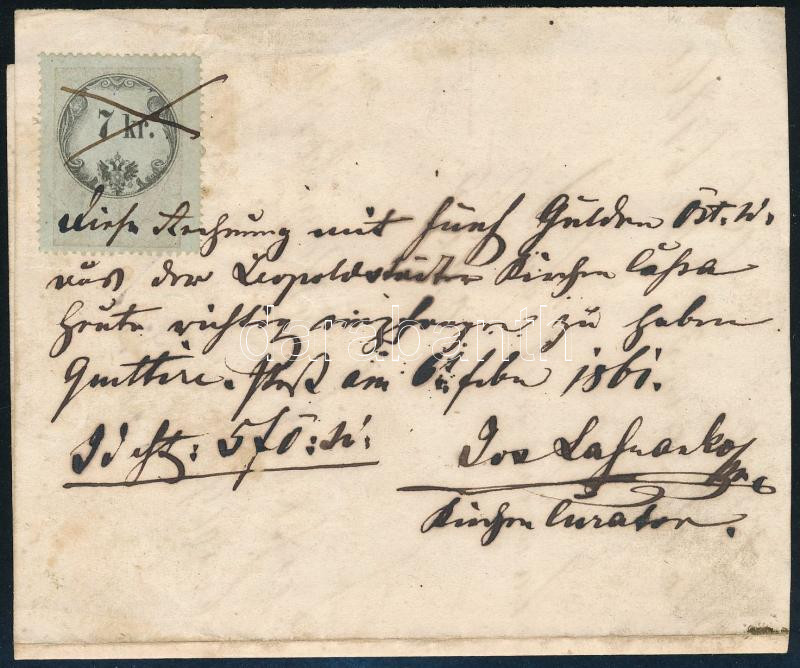 7 kr.
Diese Rechnung mit fünf Gulden Öst. W.
aus der Leopoldstädter Kirchen Cassa
heute richtig empfangen zu haben
Quittire. Pest am 6t. febr 1861.
Id est: 5 f Ö: W:
Jos
Kirchen Curator.
darabanth